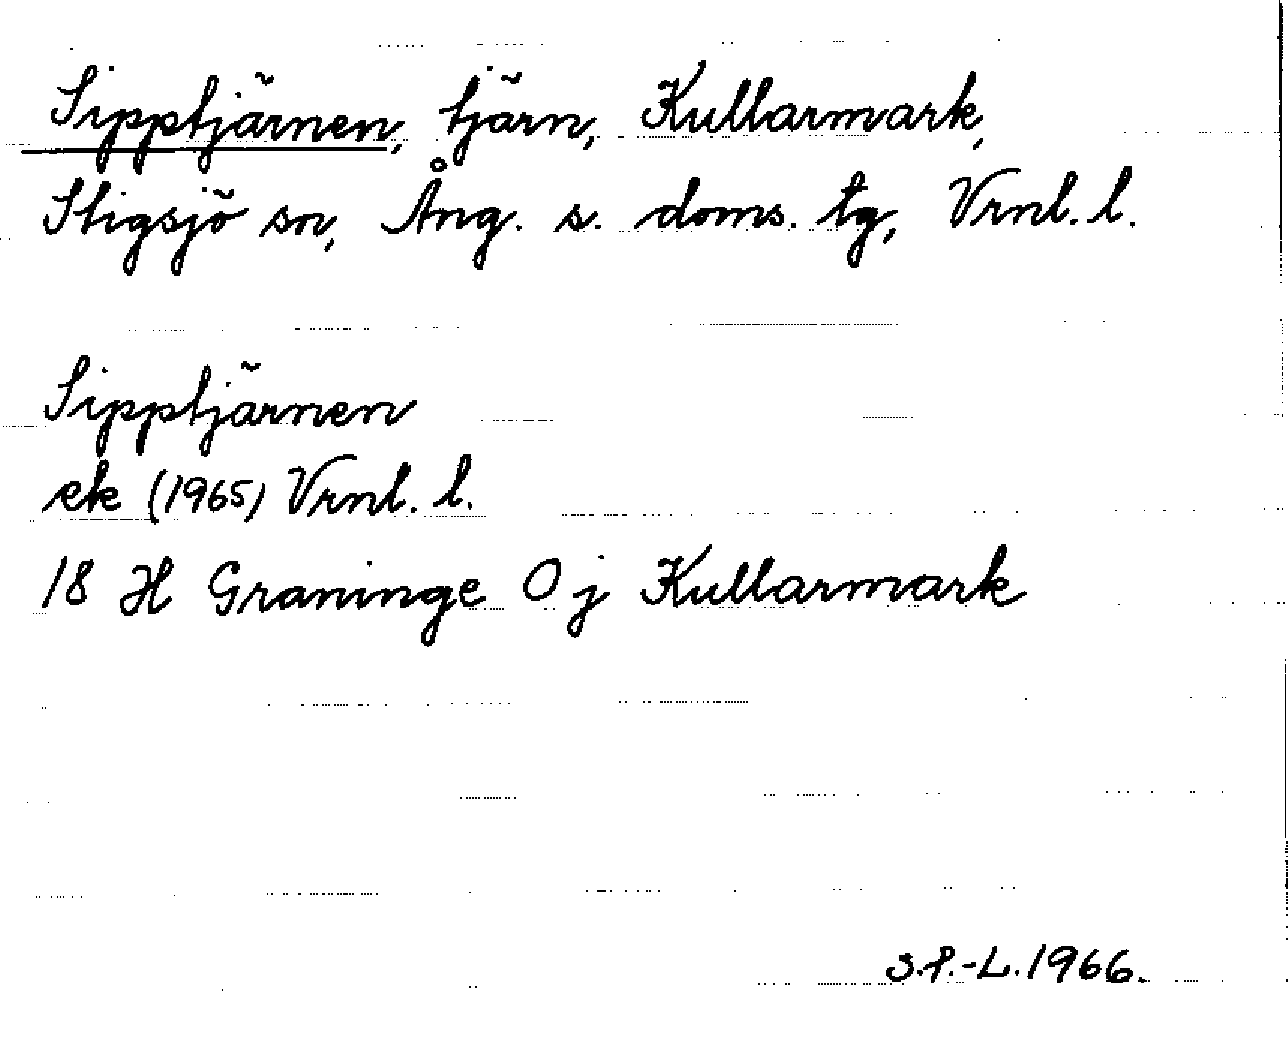 Sipptjärnen, tjärn, Kullarmark,
Stigsjö sn, Ång. s. doms. tg, Vrnl. l.
Sipptjärnen
ek (1965) Vrnl. l.
18 H Graninge O j Kullarmark
S.P.-L. 1966.